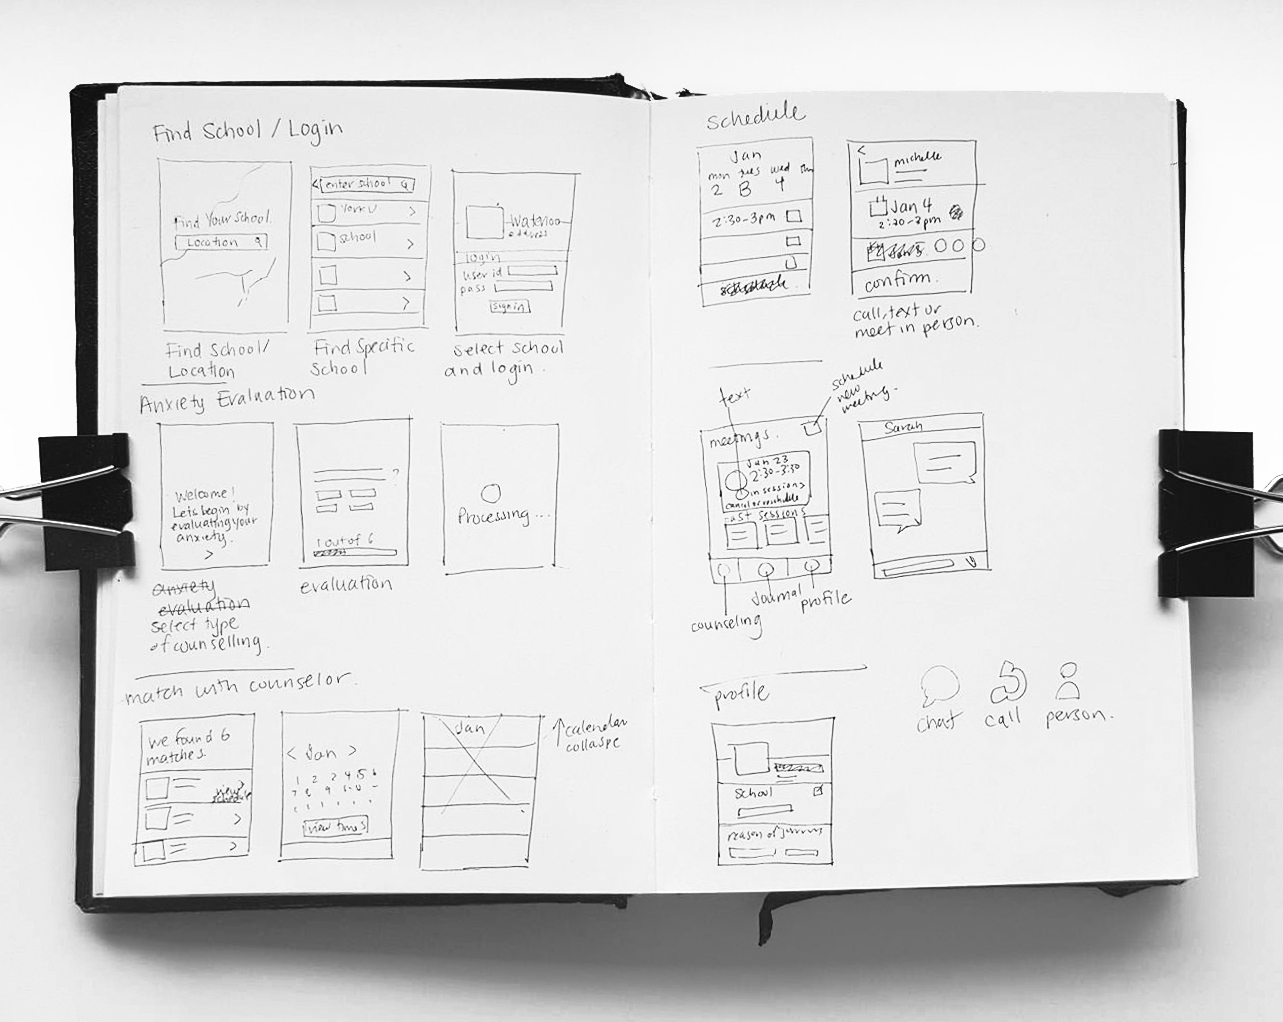 Find School / Login
Find Your School
Location
Find School/
Location
enter school
York U
school
Find Specific
School
Waterloo
address
login
user id
pass
sign in
select school
and login.
Anxiety Evaluation
Welcome!
Lets begin by
evaluating your
anxiety.
>
anxiety
evaluation
select type
of counselling.
?
1 out of 6
evaluation
Processing...
match with counselor.
we found 6
matches.
new
schedule
< Jan >
1 2 3 4 5 6
view times
Jan
calendar
collaspe
schedule
Jan
mon tues wed thu
2 3 4
2:30-3pm
<
michelle
Jan 4
2:30-3pm
confirm.
call, text or
meet in person.
text
schedule
new
meeting.
meetings.
Jan 23
2:30-3:30
in session>
cancel or reschedule
past sessions
counseling
Journal
profile
Sarah
profile
School
reason of
chat
call
person.